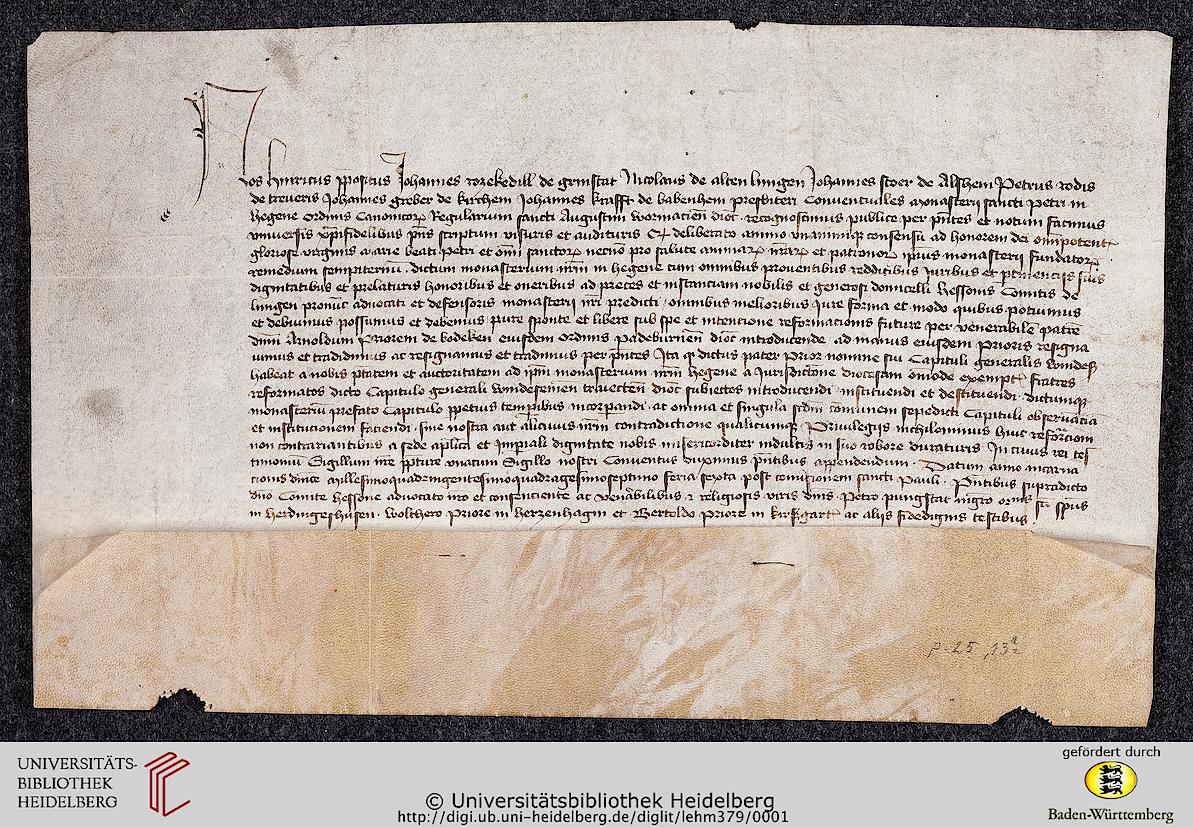 Nos Hinricus ppositus Johannes rozekedill de grinstat Nicolaus de alten lyngen Johannes stoer de Alshem Petrus rodis
de treveris Johannes greber de kirchem Johannes krafft de babenhem presbiteri Conventuales monasterij sancti petri in
hegene ordinis Canonicor Regularium sancti Augustini wormacien dioc recognoscimus publice per pntes et notum facimus
vniuersis xpifidelibus pns scriptum visuris et audituris deliberato animo vnanimiqz consensu ad honorem dei omipotent
gloriose virginis marie beati petri et oim sanctor necno pro salute animar nrar et patronor ipius monasterij fundator
remedium sempiternu dictum monasterium nrm in hegene cum omnibus proventibus redditibus Juribus et ptinencijs suis
dignitatibus et prelaturis honoribus et oneribus ad preces et instantiam nobilis et generosi domicelli hessonis Comitis de
lyngen pronuc advocati et defensoris monasterij nri predicti omnibus melioribus Jure forma et modo quibus potuimus
et debuimus possumus et debemus pure sponte et libere sub spe et intencione reformacionis future per venerabile patre
dnm Arnoldum Priorem de bodeken eiusdem ordinis padeburnen dioc introducende ad manus eiusdem prioris resigna
uimus et tradidimus ac resignamus et tradimus per pntes Ita q dictus pater prior nomine sui Capituli generalis windes
habeat a nobis ptatem et auctoritatem ad ipm monasterium nrm hegene a Jurisdictione diocesani oimode exempt fratres
reformatos dicto Capitulo generali windesemen traiecten dioc subiectos introducendi instituendi et destituendi dictumqz
monasteriu prefato Capitulo ppetuis tempibus incorporandi ac omnia et singula scdm comunem sepedicti Capituli obseruacia
et institucionem faciendi sine nostra aut alicuius nrm contradictione qualicumqz Priuilegijs nichilominus huic reformacioni
non contrariantibus a sede aplica et Imperiali dignitate nobis misericorditer indultis in suo robore duraturis In cuius rei tes
timoniu Sigillum nre ppositure vnacum Sigillo nostri Conventus duximus pntibus appendendum Datum anno incarna
cionis dnice Millesimoquadringentesimoquadragesimoseptimo feria sexta post conuersionem sancti Pauli Pntibus supradicto
dno Comite hessone advocato nro et consenciente ac venabilibus et religiosis viris dnis petro pungstat mgro ordis sci spus
in herdingeshusen wolthero priore in herzenhagin et Bertoldo priore in kirsgart ac alijs fidedignis testibus
P. 25, 13a
UNIVERSITÄTS-
BIBLIOTHEK
HEIDELBERG
© Universitätsbibliothek Heidelberg
http://digi.ub.uni-heidelberg.de/diglit/lehm379/0001
gefördert durch
Baden-Württemberg